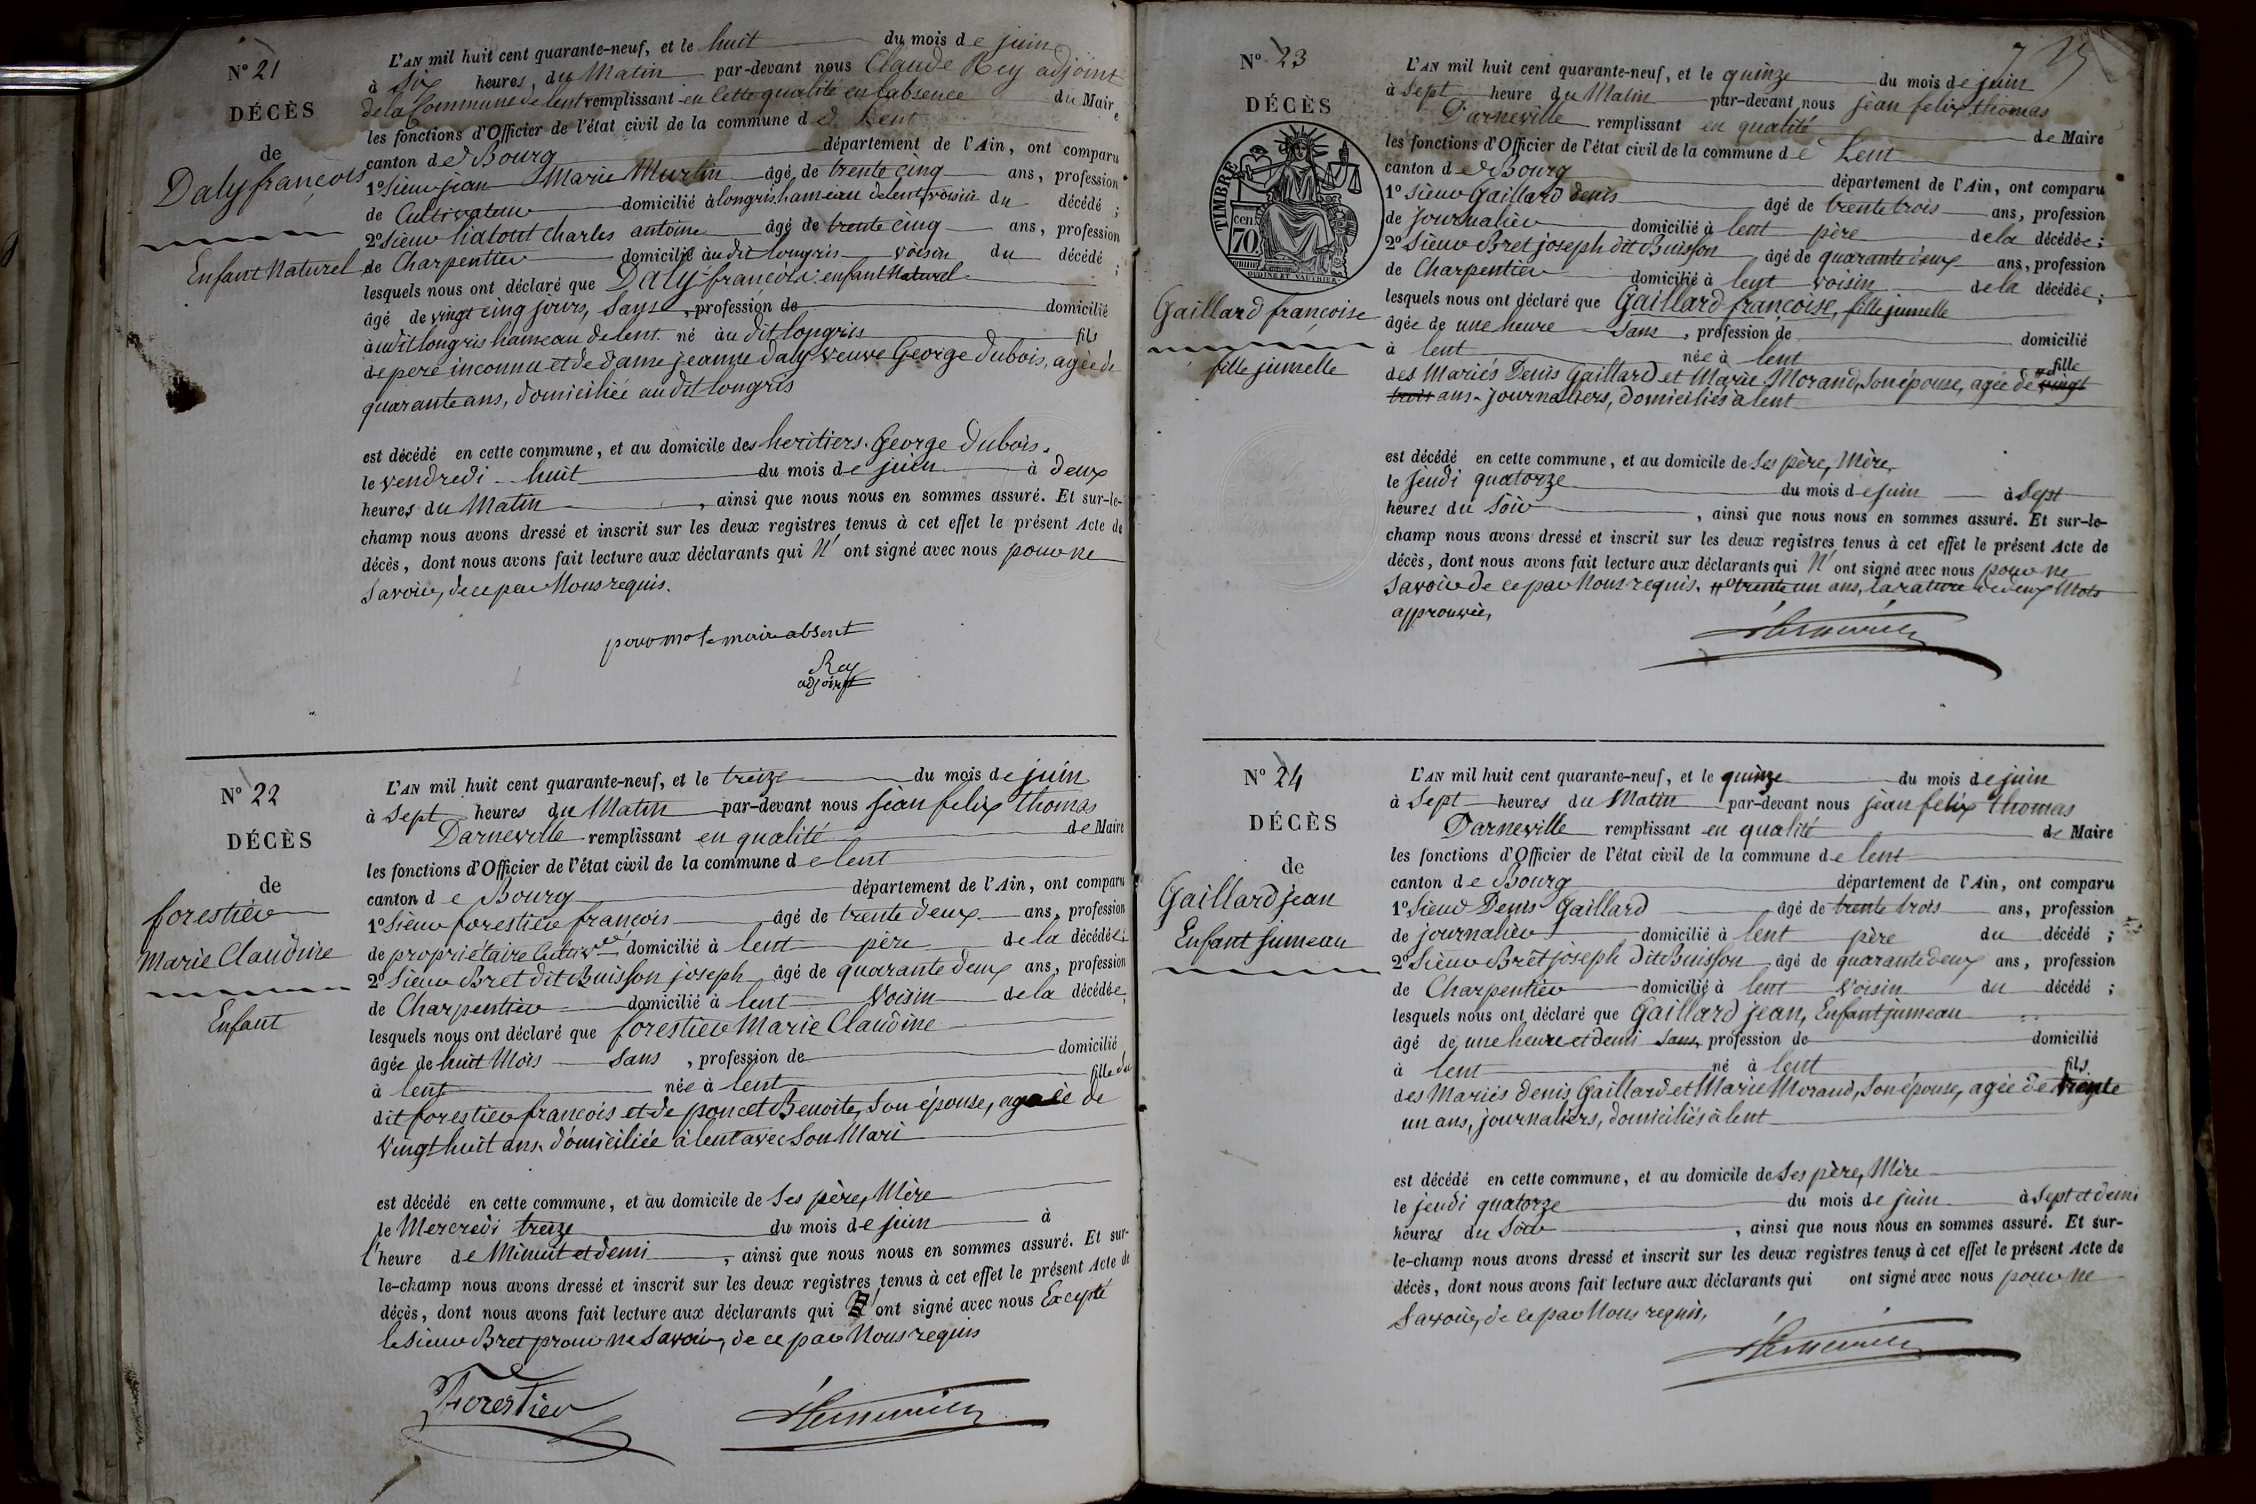 N° 21
DÉCÈS
de
Daly françois
Enfant Naturel
L'AN mil huit cent quarante-neuf, et le huit du mois de juin
à six heures, du Matin par-devant nous Claude Rey adjoint
de la Commune de lent remplissant en cette qualité en l'absence du Maire
les fonctions d'Officier de l'état civil de la commune de Lent
canton de Bourg département de l'Ain, ont comparu
1° Sieur jean Marie Murlin âgé de trente cinq ans, profession
de Cultivateur domicilié à longris hameau de lent, voisin du décédé ;
2° Sieur liatout Charles antoine âgé de trente cinq ans, profession
de Charpentier domicilié au dit longris voisin du décédé ;
lesquels nous ont déclaré que Daly françois enfant Naturel
âgé de vingt cinq jours, Sans, profession de domicilié
au dit longris hameau de lent né au dit longris fils
de père inconnu et de Dame jeanne daly veuve George dubois, agée de
quarante ans, domiciliée au dit longris
est décédé en cette commune, et au domicile des heritiers George dubois,
le vendredi huit du mois de juin à deux
heures du Matin, ainsi que nous nous en sommes assuré. Et sur-le-
champ nous avons dressé et inscrit sur les deux registres tenus à cet effet le présent Acte de
décès, dont nous avons fait lecture aux déclarants qui N' ont signé avec nous pour ne
Savoir, de ce par Nous requis.
pour mr le maire absent
Rey
adjoint
N° 22
DÉCÈS
de
forestier
Marie Claudine
Enfant
L'AN mil huit cent quarante-neuf, et le treize du mois de juin
à Sept heures du Matin par-devant nous jean felix thomas
Darneville remplissant en qualité de Maire
les fonctions d'Officier de l'état civil de la commune de lent
canton de Bourg département de l'Ain, ont comparu
1° Sieur forestier françois âgé de trente deux ans, profession
de propriétaire Cultivr domicilié à lent père de la décédée;
2° Sieur Bret dit Buisson joseph âgé de quarante deux ans, profession
de Charpentier domicilié à lent Voisin de la décédée;
lesquels nous ont déclaré que forestier Marie Claudine
âgée de huit Mois Sans, profession de domicilié
à lent née à lent fille du
dit forestier françois et de poncet Benoite, Son épouse, agée de
Vingt huit ans domiciliée à lent avec Son Mari
est décédé en cette commune, et au domicile de Ses père, Mère
le Mercredi treize du mois de juin à
l'heure de Minuit et demi, ainsi que nous nous en sommes assuré. Et sur-
le-champ nous avons dressé et inscrit sur les deux registres tenus à cet effet le présent Acte de
décès, dont nous avons fait lecture aux déclarants qui ont signé avec nous Excepté
le Sieur Bret pour ne Savoir, de ce par Nous requis
Forestier
7
N° 23
DÉCÈS
TIMBRE
cen
70
OUDINÉ ET VAUTHIER
Gaillard françoise
fille jumelle
L'AN mil huit cent quarante-neuf, et le quinze du mois de juin
à Sept heure du Matin par-devant nous jean felix thomas
Darneville remplissant en qualité de Maire
les fonctions d'Officier de l'état civil de la commune de Lent
canton de Bourg département de l'Ain, ont comparu
1° Sieur Gaillard denis âgé de trente trois ans, profession
de journalier domicilié à lent père de la décédée;
2° Sieur Bret joseph dit Buisson âgé de quarante deux ans, profession
de Charpentier domicilié à lent voisin de la décédée;
lesquels nous ont déclaré que Gaillard françoise, fille jumelle
âgée de une heure Sans, profession de domicilié
à lent née à lent fille
des Mariés Denis Gaillard et Marie Morand, Son épouse, agée de vingt
trois ans journaliers, domiciliés à lent
est décédé en cette commune, et au domicile de Ses père, Mère,
le jeudi quatorze du mois de juin à Sept
heures du Soir, ainsi que nous nous en sommes assuré. Et sur-le-
champ nous avons dressé et inscrit sur les deux registres tenus à cet effet le présent Acte de
décès, dont nous avons fait lecture aux déclarants qui N' ont signé avec nous pour ne
Savoir de ce par Nous requis. trente un ans, la rature de deux Mots
approuvée,
N° 24
DÉCÈS
de
Gaillard jean
Enfant Jumeau
L'AN mil huit cent quarante-neuf, et le quinze du mois de juin
à Sept heures du Matin par-devant nous jean felix thomas
Darneville remplissant en qualité de Maire
les fonctions d'Officier de l'état civil de la commune de lent
canton de Bourg département de l'Ain, ont comparu
1° Sieur Denis Gaillard âgé de trente trois ans, profession
de journalier domicilié à lent père du décédé ;
2° Sieur Bret joseph dit Buisson âgé de quarante deux ans, profession
de Charpentier domicilié à lent Voisin du décédé ;
lesquels nous ont déclaré que Gaillard jean, Enfant jumeau
âgé de une heure et demi Sans, profession de domicilié
à lent né à lent fils
des Mariés denis Gaillard et Marie Morand, Son épouse, agée de trente
un ans, journaliers, domiciliés à lent
est décédé en cette commune, et au domicile de Ses père, Mère
le jeudi quatorze du mois de juin à Sept et demi
heures du Soir, ainsi que nous nous en sommes assuré. Et sur-
le-champ nous avons dressé et inscrit sur les deux registres tenus à cet effet le présent Acte de
décès, dont nous avons fait lecture aux déclarants qui ont signé avec nous pour ne
Savoir, de ce par Nous requis,